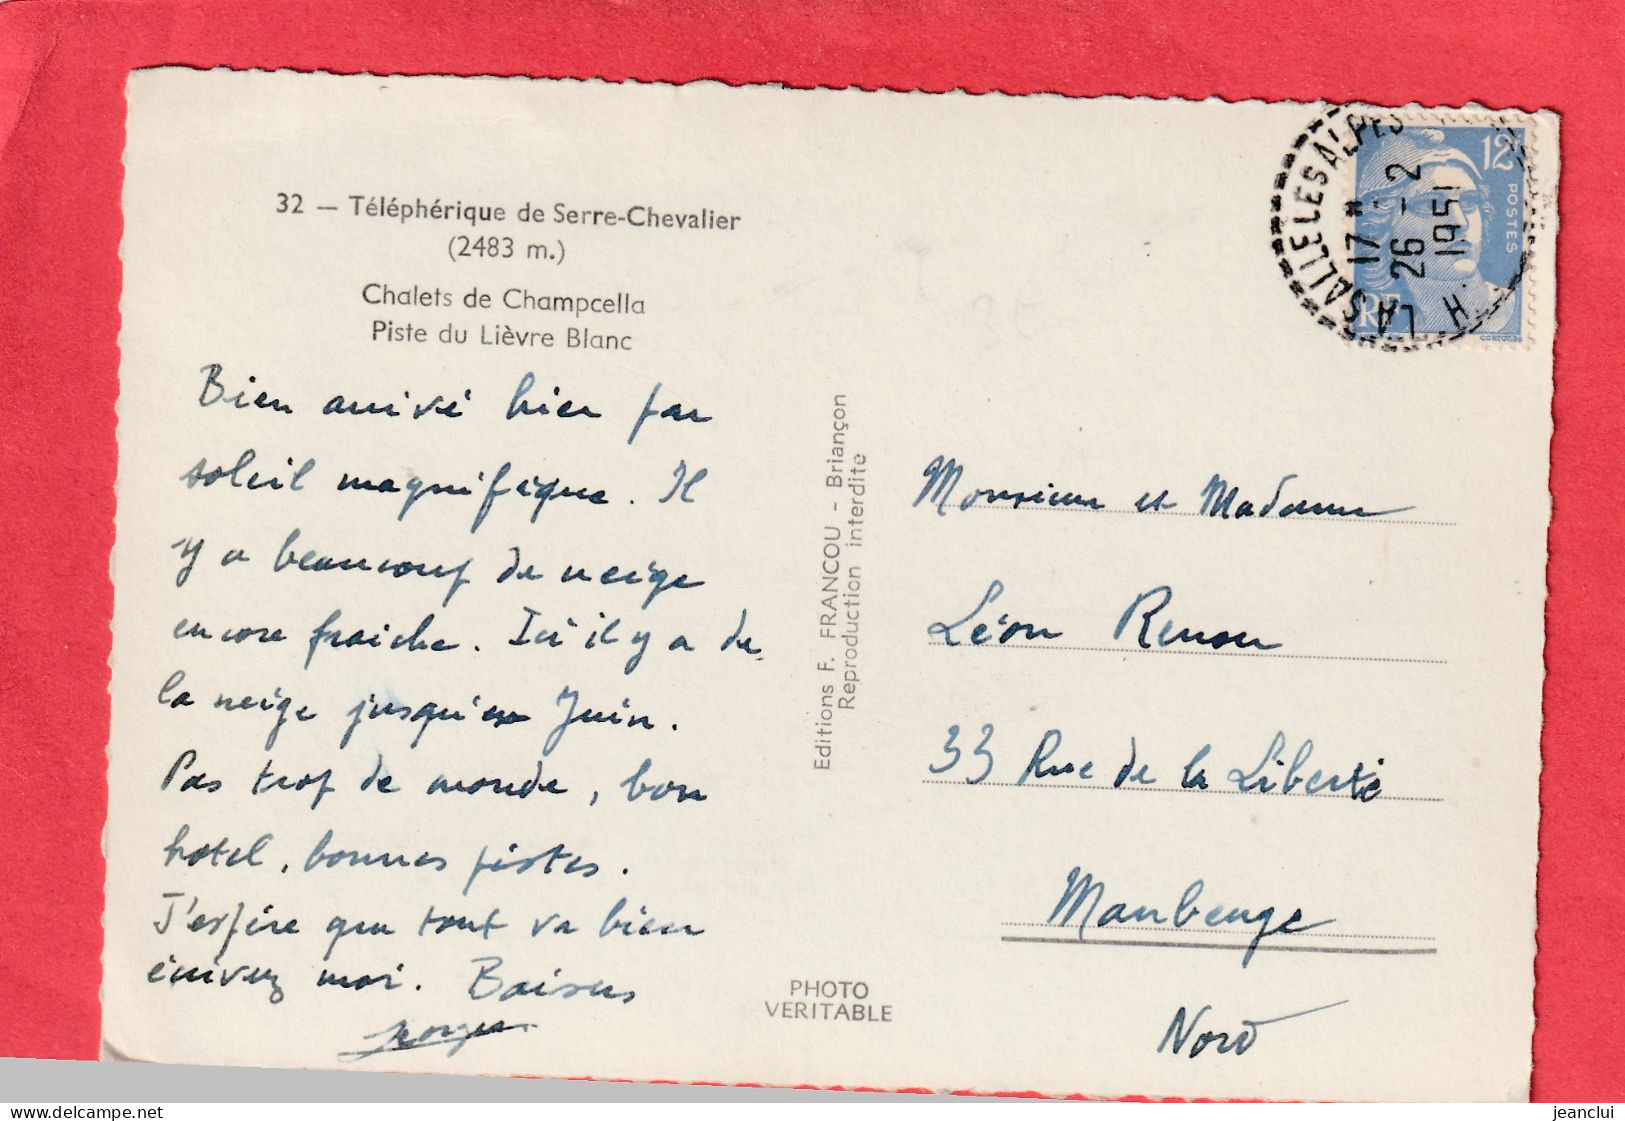 32 — Téléphérique de Serre-Chevalier
(2483 m.)
Chalets de Champcella
Piste du Lièvre Blanc
Bien arrivé hier par
soleil magnifique. Il
y a beaucoup de neige
encore fraiche. Ici il y a de
la neige jusqu'en Juin.
Pas trop de monde, bon
hotel, bonnes pistes.
J'espère que tout va bien
écrivez moi. Baisers
Editions F. FRANCOU - Briançon
Reproduction interdite
PHOTO
VERITABLE
LA SALLE LES ALPES
17 H
26 - 2
1951
H.
12F
POSTES
RF
Monsieur et Madame
Léon Renou
33 Rue de la Liberté
Maubeuge
Nord
delcampe.net
jeanclui